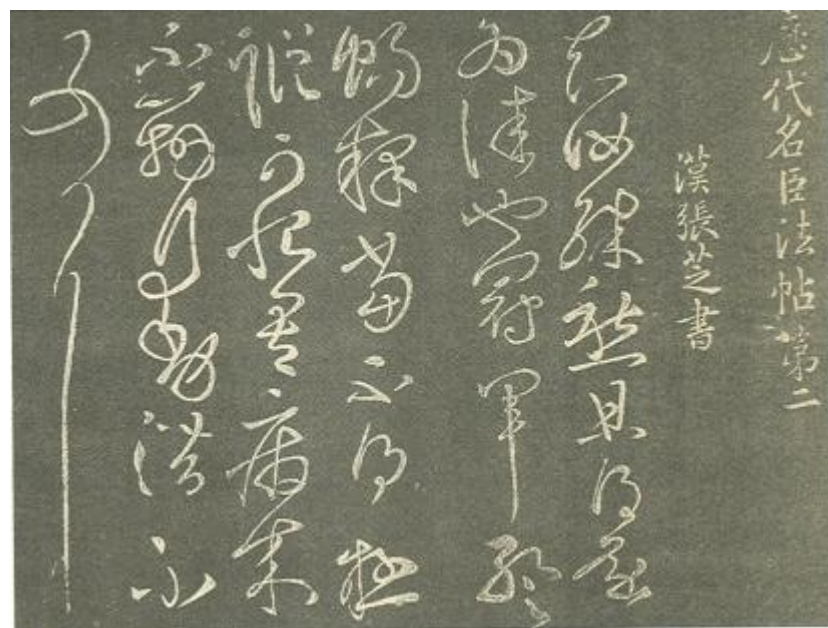 歷代名臣法帖第二
漢張芝書
知汝殊愁且得還
為佳也冠軍暫
暢釋當不得極
蹤可恨吾病來
不辦行動潛不
可耳